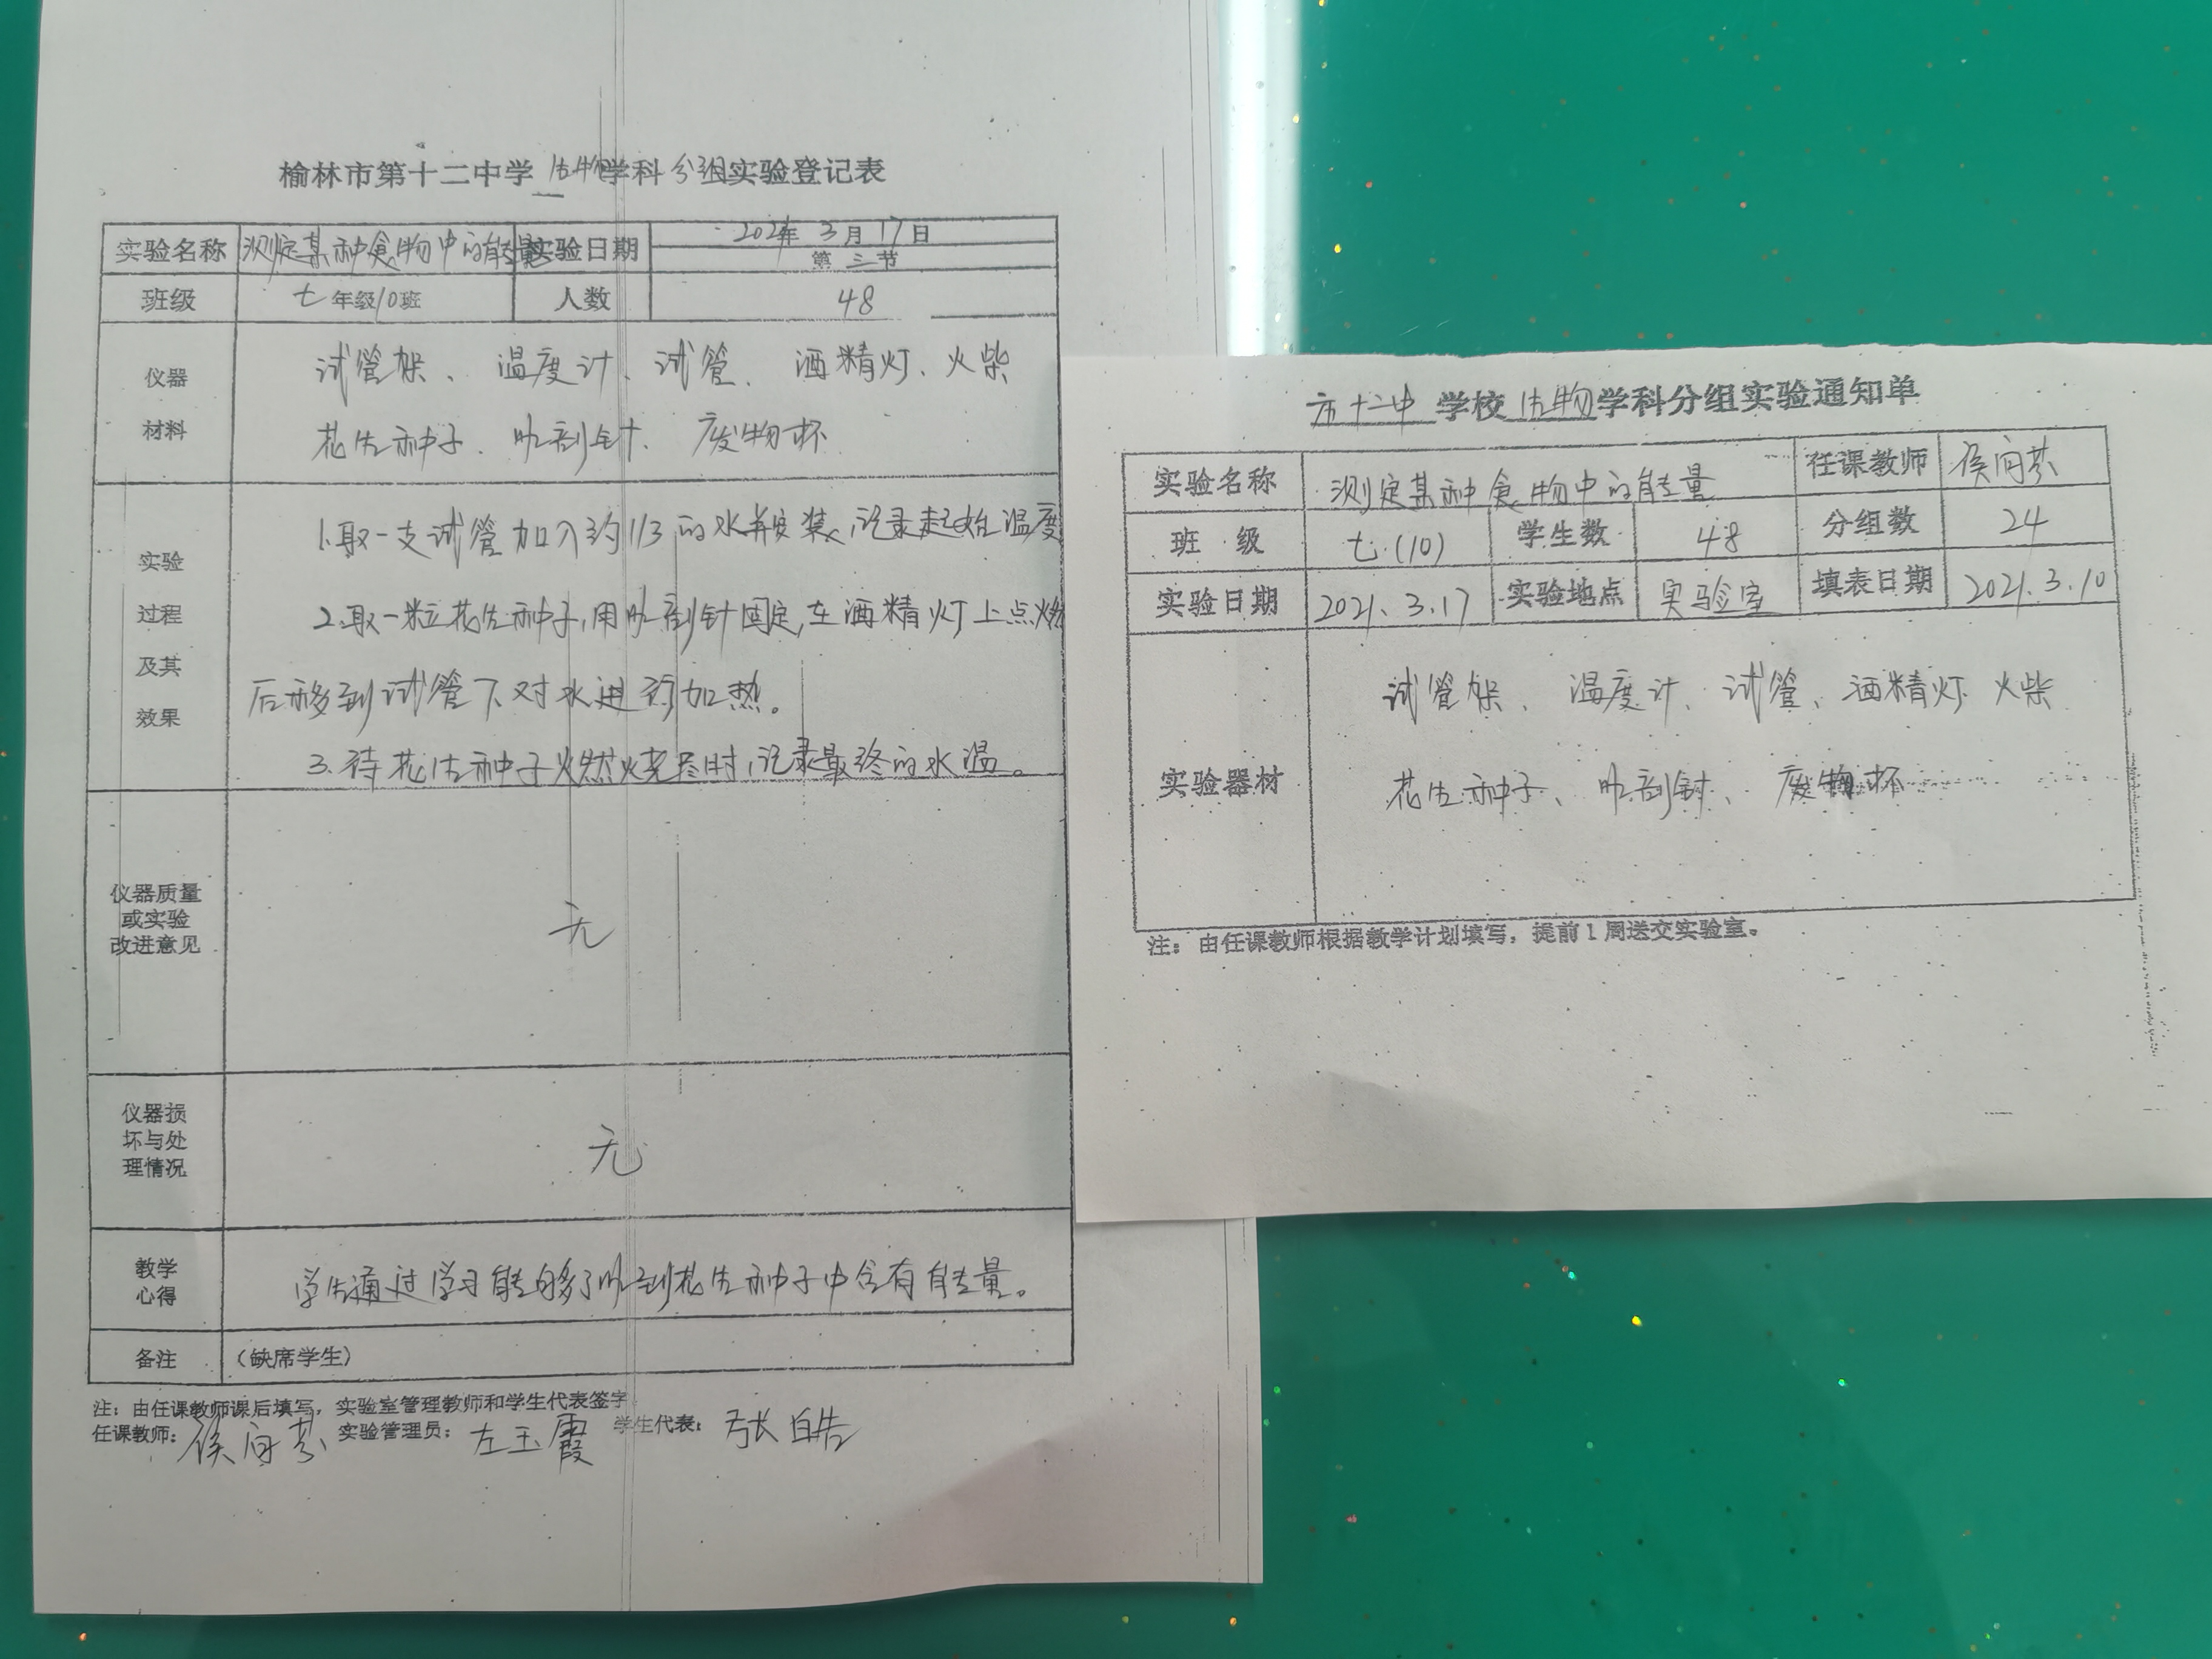 榆林市第十二中学 生物学科 分组实验登记表
实验名称 测定某种食物中的能量 实验日期 2021年 3月 17日
第 三 节
班级 七年级10班 人数 48
仪器
材料
试管架、温度计、试管、酒精灯、火柴
花生种子、解剖针、废物杯
实验
过程
及其
效果
1.取一支试管加入约1/3的水并安装,记录起始温度
2.取一粒花生种子,用解剖针固定,在酒精灯上点燃
后移到试管下对水进行加热。
3.待花生种子燃烧尽时,记录最终的水温。
仪器质量
或实验
改进意见
无
仪器损
坏与处
理情况
无
教学
心得
学生通过学习能够了解到花生种子中含有能量。
备注 (缺席学生)
注:由任课教师课后填写,实验室管理教师和学生代表签字
任课教师: 侯向芬 实验管理员: 左玉霞 学生代表: 张皓
市十二中 学校 生物 学科分组实验通知单
实验名称 测定某种食物中的能量 任课教师 侯向芬
班 级 七.(10) 学生数 48 分组数 24
实验日期 2021.3.17 实验地点 实验室 填表日期 2021.3.10
实验器材
试管架、温度计、试管、酒精灯 火柴
花生种子、解剖针、废物杯
注:由任课教师根据教学计划填写,提前1周送交实验室。